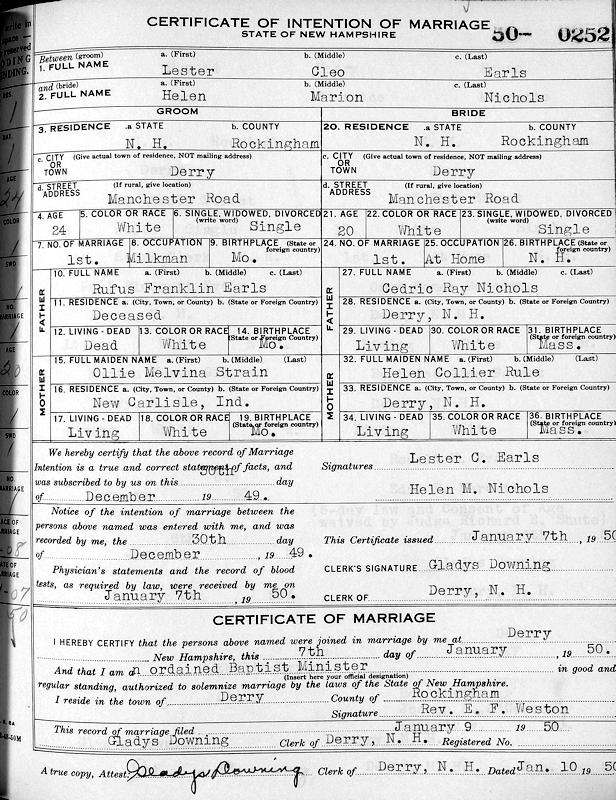 CERTIFICATE OF INTENTION OF MARRIAGE
STATE OF NEW HAMPSHIRE
50- 0252
Between (groom) a. (First) b. (Middle) c. (Last)
1. FULL NAME Lester Cleo Earls
and (bride) a. (First) b. (Middle) c. (Last)
2. FULL NAME Helen Marion Nichols
GROOM BRIDE
3. RESIDENCE .a STATE b. COUNTY 20. RESIDENCE .a STATE b. COUNTY
N. H. Rockingham N. H. Rockingham
c. CITY OR TOWN (Give actual town of residence, NOT mailing address) c. CITY OR TOWN (Give actual town of residence, NOT mailing address)
Derry Derry
d. STREET ADDRESS (If rural, give location) d. STREET ADDRESS (If rural, give location)
Manchester Road Manchester Road
4. AGE 5. COLOR OR RACE 6. SINGLE, WIDOWED, DIVORCED (write word) 21. AGE 22. COLOR OR RACE 23. SINGLE, WIDOWED, DIVORCED (write word)
24 White Single 20 White Single
7. NO. OF MARRIAGE 8. OCCUPATION 9. BIRTHPLACE (State or foreign country) 24. NO. OF MARRIAGE 25. OCCUPATION 26. BIRTHPLACE (State or foreign country)
1st. Milkman Mo. 1st. At Home N. H.
FATHER 10. FULL NAME a. (First) b. (Middle) c. (Last) FATHER 27. FULL NAME a. (First) b. (Middle) c. (Last)
Rufus Franklin Earls Cedric Ray Nichols
11. RESIDENCE a. (City, Town, or County) b. (State or Foreign Country) 28. RESIDENCE a. (City, Town, or County) b. (State or Foreign Country)
Deceased Derry, N. H.
12. LIVING - DEAD 13. COLOR OR RACE 14. BIRTHPLACE (State or foreign country) 29. LIVING - DEAD 30. COLOR OR RACE 31. BIRTHPLACE (State or foreign country)
Dead White Mo. Living White Mass.
MOTHER 15. FULL MAIDEN NAME a. (First) b. (Middle) (Last) MOTHER 32. FULL MAIDEN NAME a. (First) b. (Middle) (Last)
Ollie Melvina Strain Helen Collier Rule
16. RESIDENCE a. (City, Town, or County) b. (State or Foreign Country) 33. RESIDENCE a. (City, Town, or County) b. (State or Foreign Country)
New Carlisle, Ind. Derry, N. H.
17. LIVING - DEAD 18. COLOR OR RACE 19. BIRTHPLACE (State or foreign country) 34. LIVING - DEAD 35. COLOR OR RACE 36. BIRTHPLACE (State or foreign country)
Living White Mo. Living White Mass.
We hereby certify that the above record of Marriage
Intention is a true and correct statement of facts, and
was subscribed to by us on this 30th day
of December 19 49.
Signatures Lester C. Earls
Helen M. Nichols
Notice of the intention of marriage between the
persons above named was entered with me, and was
recorded by me, the 30th day
of December, 19 49.
This Certificate issued January 7th, 19 50
Physician's statements and the record of blood
tests, as required by law, were received by me on
January 7th, 19 50.
CLERK'S SIGNATURE Gladys Downing
CLERK OF Derry, N. H.
CERTIFICATE OF MARRIAGE
I HEREBY CERTIFY that the persons above named were joined in marriage by me at Derry
New Hampshire, this 7th day of January, 19 50.
And that I am an ordained Baptist Minister in good and
(Insert here your official designation)
regular standing, authorized to solemnize marriage by the laws of the State of New Hampshire.
I reside in the town of Derry County of Rockingham
Signature Rev. E. F. Weston
This record of marriage filed January 9 19 50
Gladys Downing Clerk of Derry, N. H. Registered No.
A true copy, Attest, Gladys Downing Clerk of Derry, N. H. Dated Jan. 10 19 50